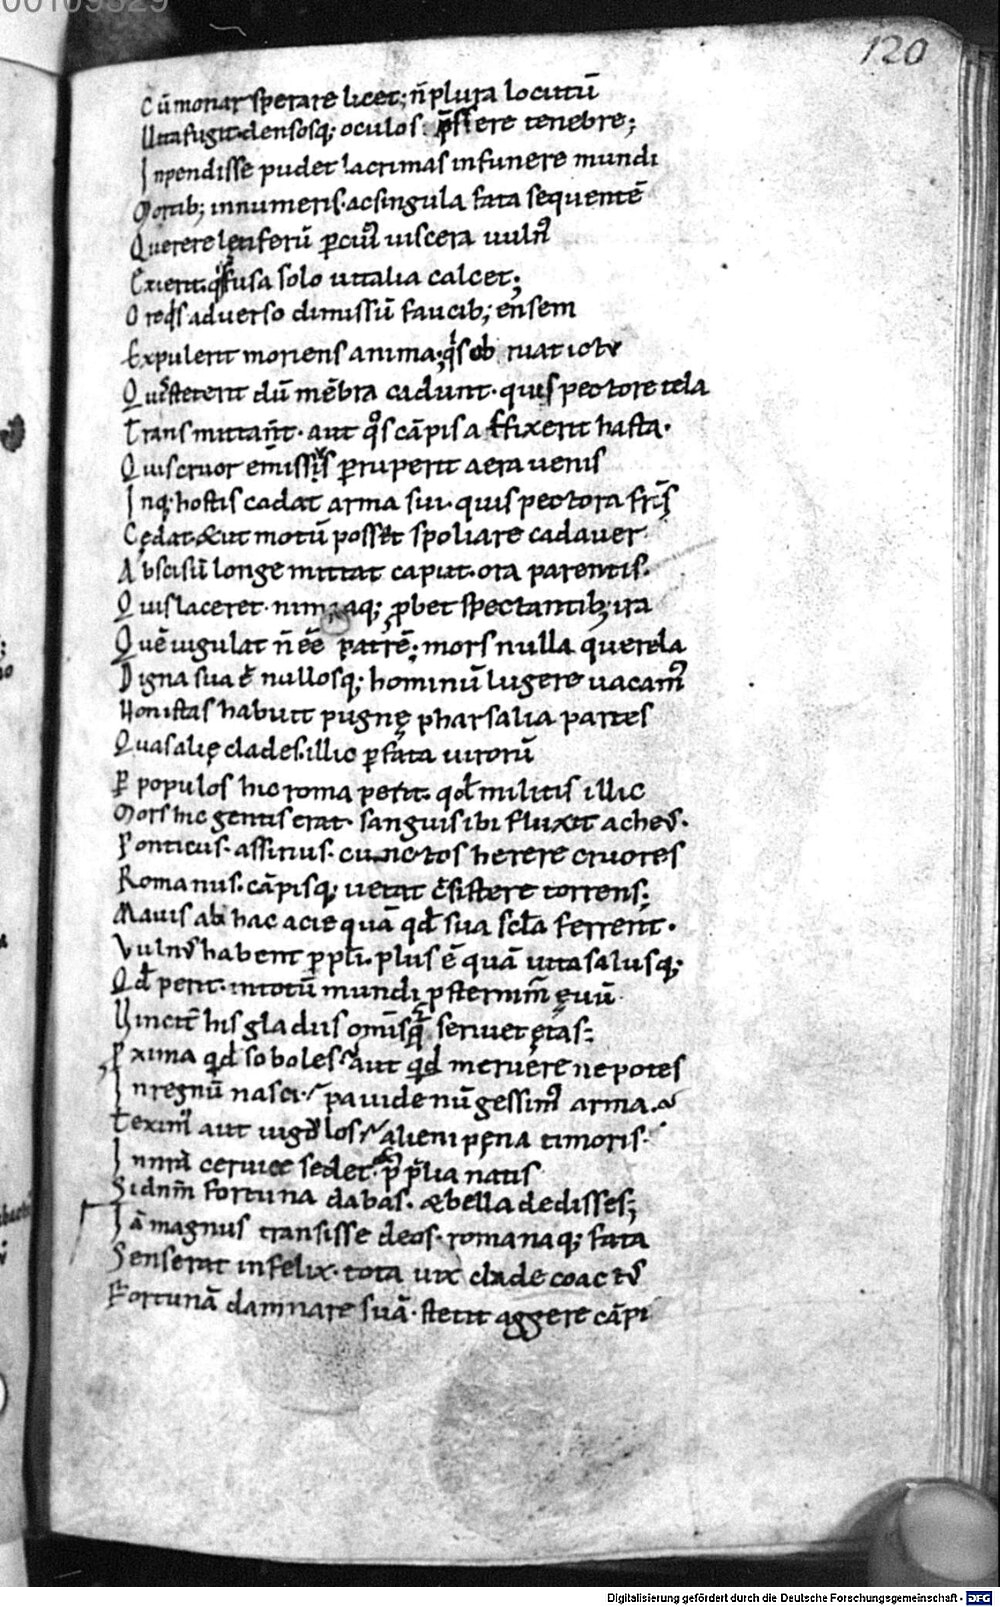 00109529
120
Cū moriar sperare licet; n̄ plura locutū
Uita fugit. densosq; oculos. p̄ssere tenebre;
Inpendisse pudet lacrimas in funere mundi
Mortib; innumeris. ac singula fata sequentē
Querere lętiferū p cuiꝰ uiscera uulnꝰ
Exierit. q̓s fusa solo uitalia calcet;
Ore q̓s aduerso dimissū faucib; ensem
Expulerit moriens anima; q̓s ruat
Quis steterit dū mēbra cadunt. quis pectore tela
Transmittant. aut q̓s cāpis affixerit hasta.
Quis cruor emissis pruperit aera uenis
Inq; hostis cadat arma sui. quis pectora fr̄is
Cędat. & ut motū posset spoliare cadauer
Abscisū longe mittat caput. ora parentis.
Quis laceret. nimiaq; pbet spectantib; ira
Quē iugulat n̄ eē patrē; mors nulla querela
Digna sua ē nullosq; hominū lugere uacamꝰ
Non istas habuit pugnę pharsalia partes
Quas alię clades. illic p fata uirorū
P populos hic roma perit. qd̄ militis illic
Mors hic gentis erat. sanguis ibi fluxit acheꝰ.
Ponticus. assirius. cunctos herere cruores
Romanus. cāpisq; uetat c̄sistere torrens;
Mauis ab hac acie quā qd̄ sua scl̄a ferrent.
Vulnꝰ habent ppl̄i. plus ē quā uita salusq;
Qd̄ perit. in totū mundi psternimꝰ ęuū
Vincit̄ his gladiis omīs quę seruiet ętas;
Pxima qid soboles. aut qid meruere nepotes
In regnū nasci. pauide nū gessimꝰ arma.
Teximꝰ aut iugulos. alieni pęna timoris.
In nrā ceruice sedet. p̄ p̄lia natis
Si dn̄m fortuna dabas. & bella dedisses;
Iā magnus transisse deos. romanaq; fata
Senserat infelix. tota uix clade coactꝰ
Fortunā damnare suā. stetit aggere cāpi
Digitalisierung gefördert durch die Deutsche Forschungsgemeinschaft - DFG